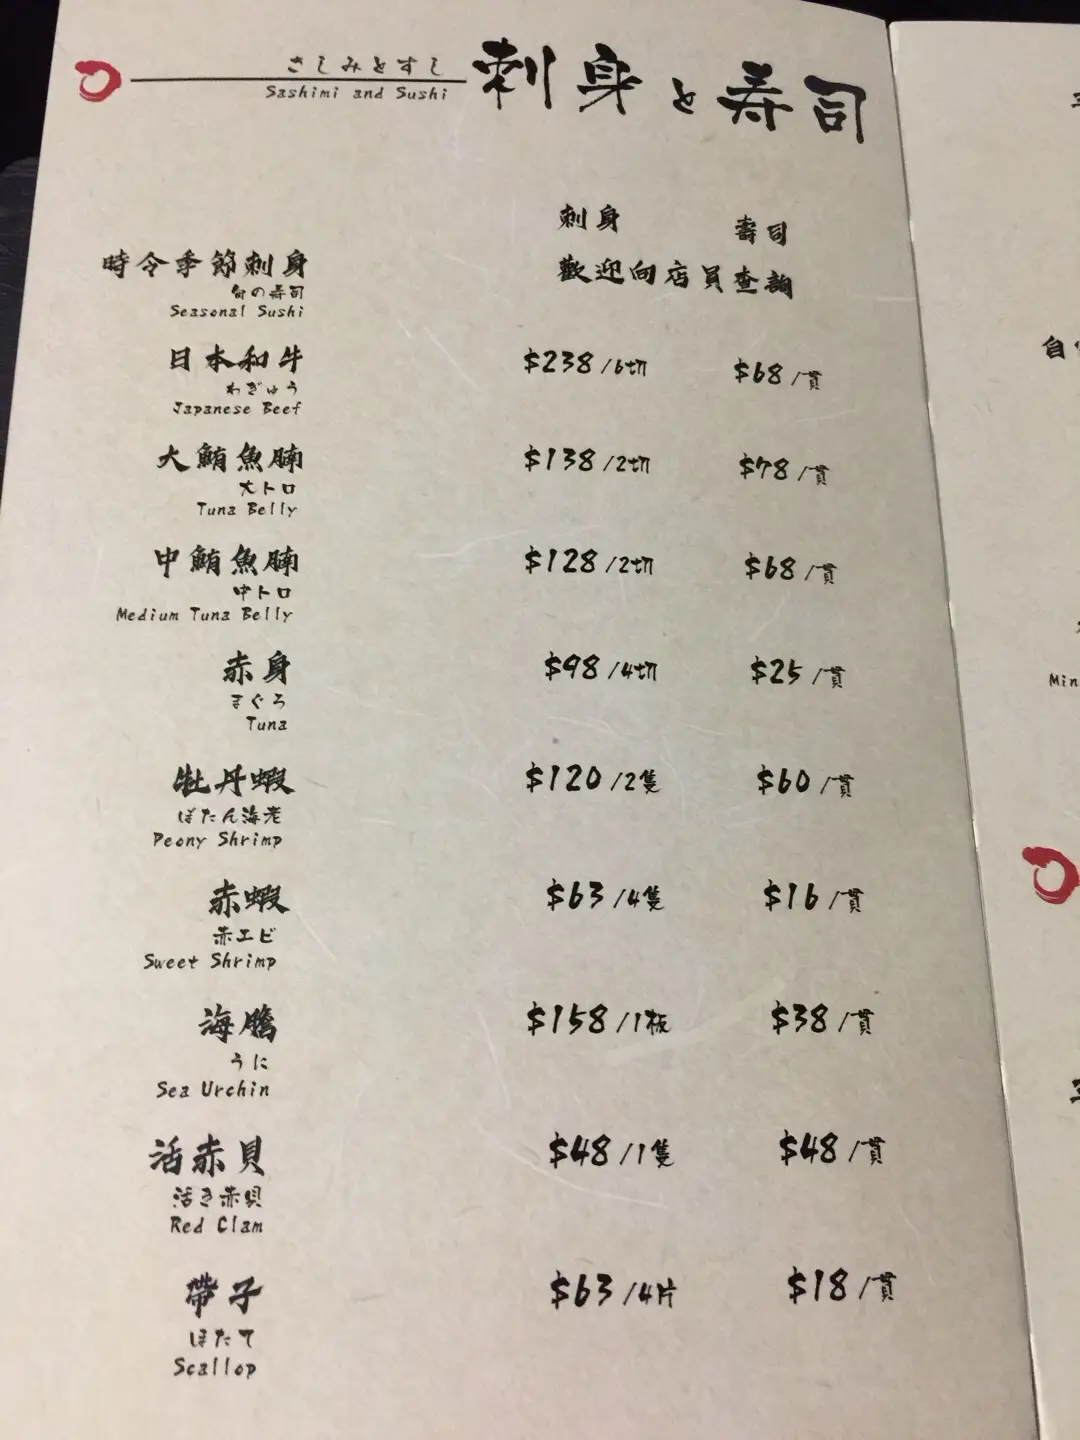 さしみとすし
Sashimi and Sushi
刺身と寿司
刺身 壽司
時令季節刺身 歡迎向店員查詢
旬の寿司
Seasonal Sushi
日本和牛 $238/6切 $68/貫
わぎゅう
Japanese Beef
大鮪魚腩 $138/2切 $78/貫
大トロ
Tuna Belly
中鮪魚腩 $128/2切 $68/貫
中トロ
Medium Tuna Belly
赤身 $98/4切 $25/貫
まぐろ
Tuna
牡丹蝦 $120/2隻 $60/貫
ぼたん海老
Peony Shrimp
赤蝦 $63/4隻 $16/貫
赤エビ
Sweet Shrimp
海膽 $158/1板 $38/貫
うに
Sea Urchin
活赤貝 $48/1隻 $48/貫
活き赤貝
Red Clam
帶子 $63/4片 $18/貫
ほたて
Scallop
自
Min